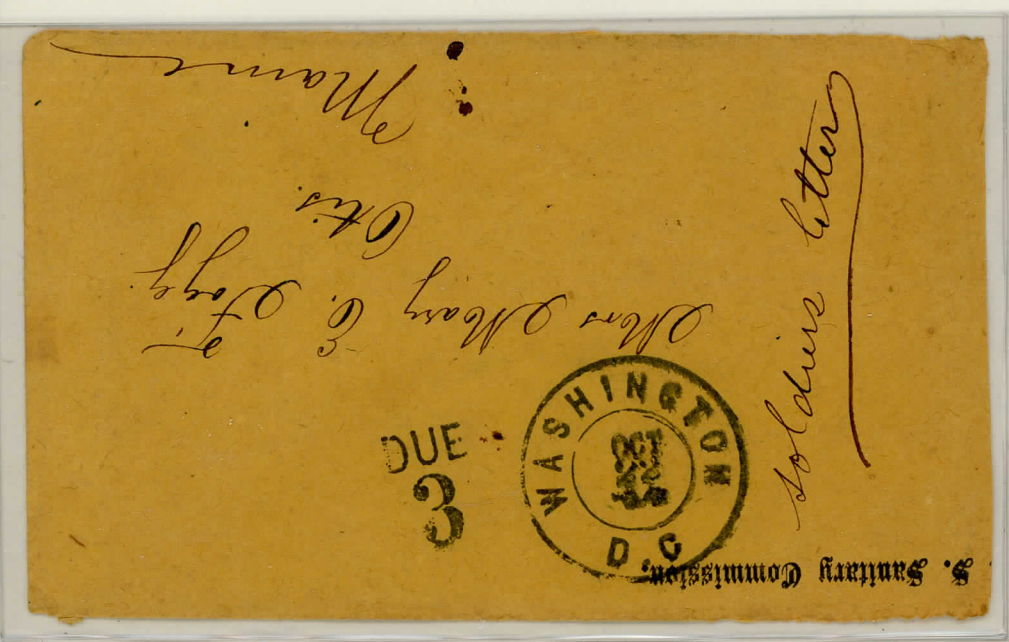 S. Sanitary Commission.
Soldiers Letter
WASHINGTON
D.C
OCT
22
DUE
3
Mrs Mary E. Fogg.
Otis.
Maine